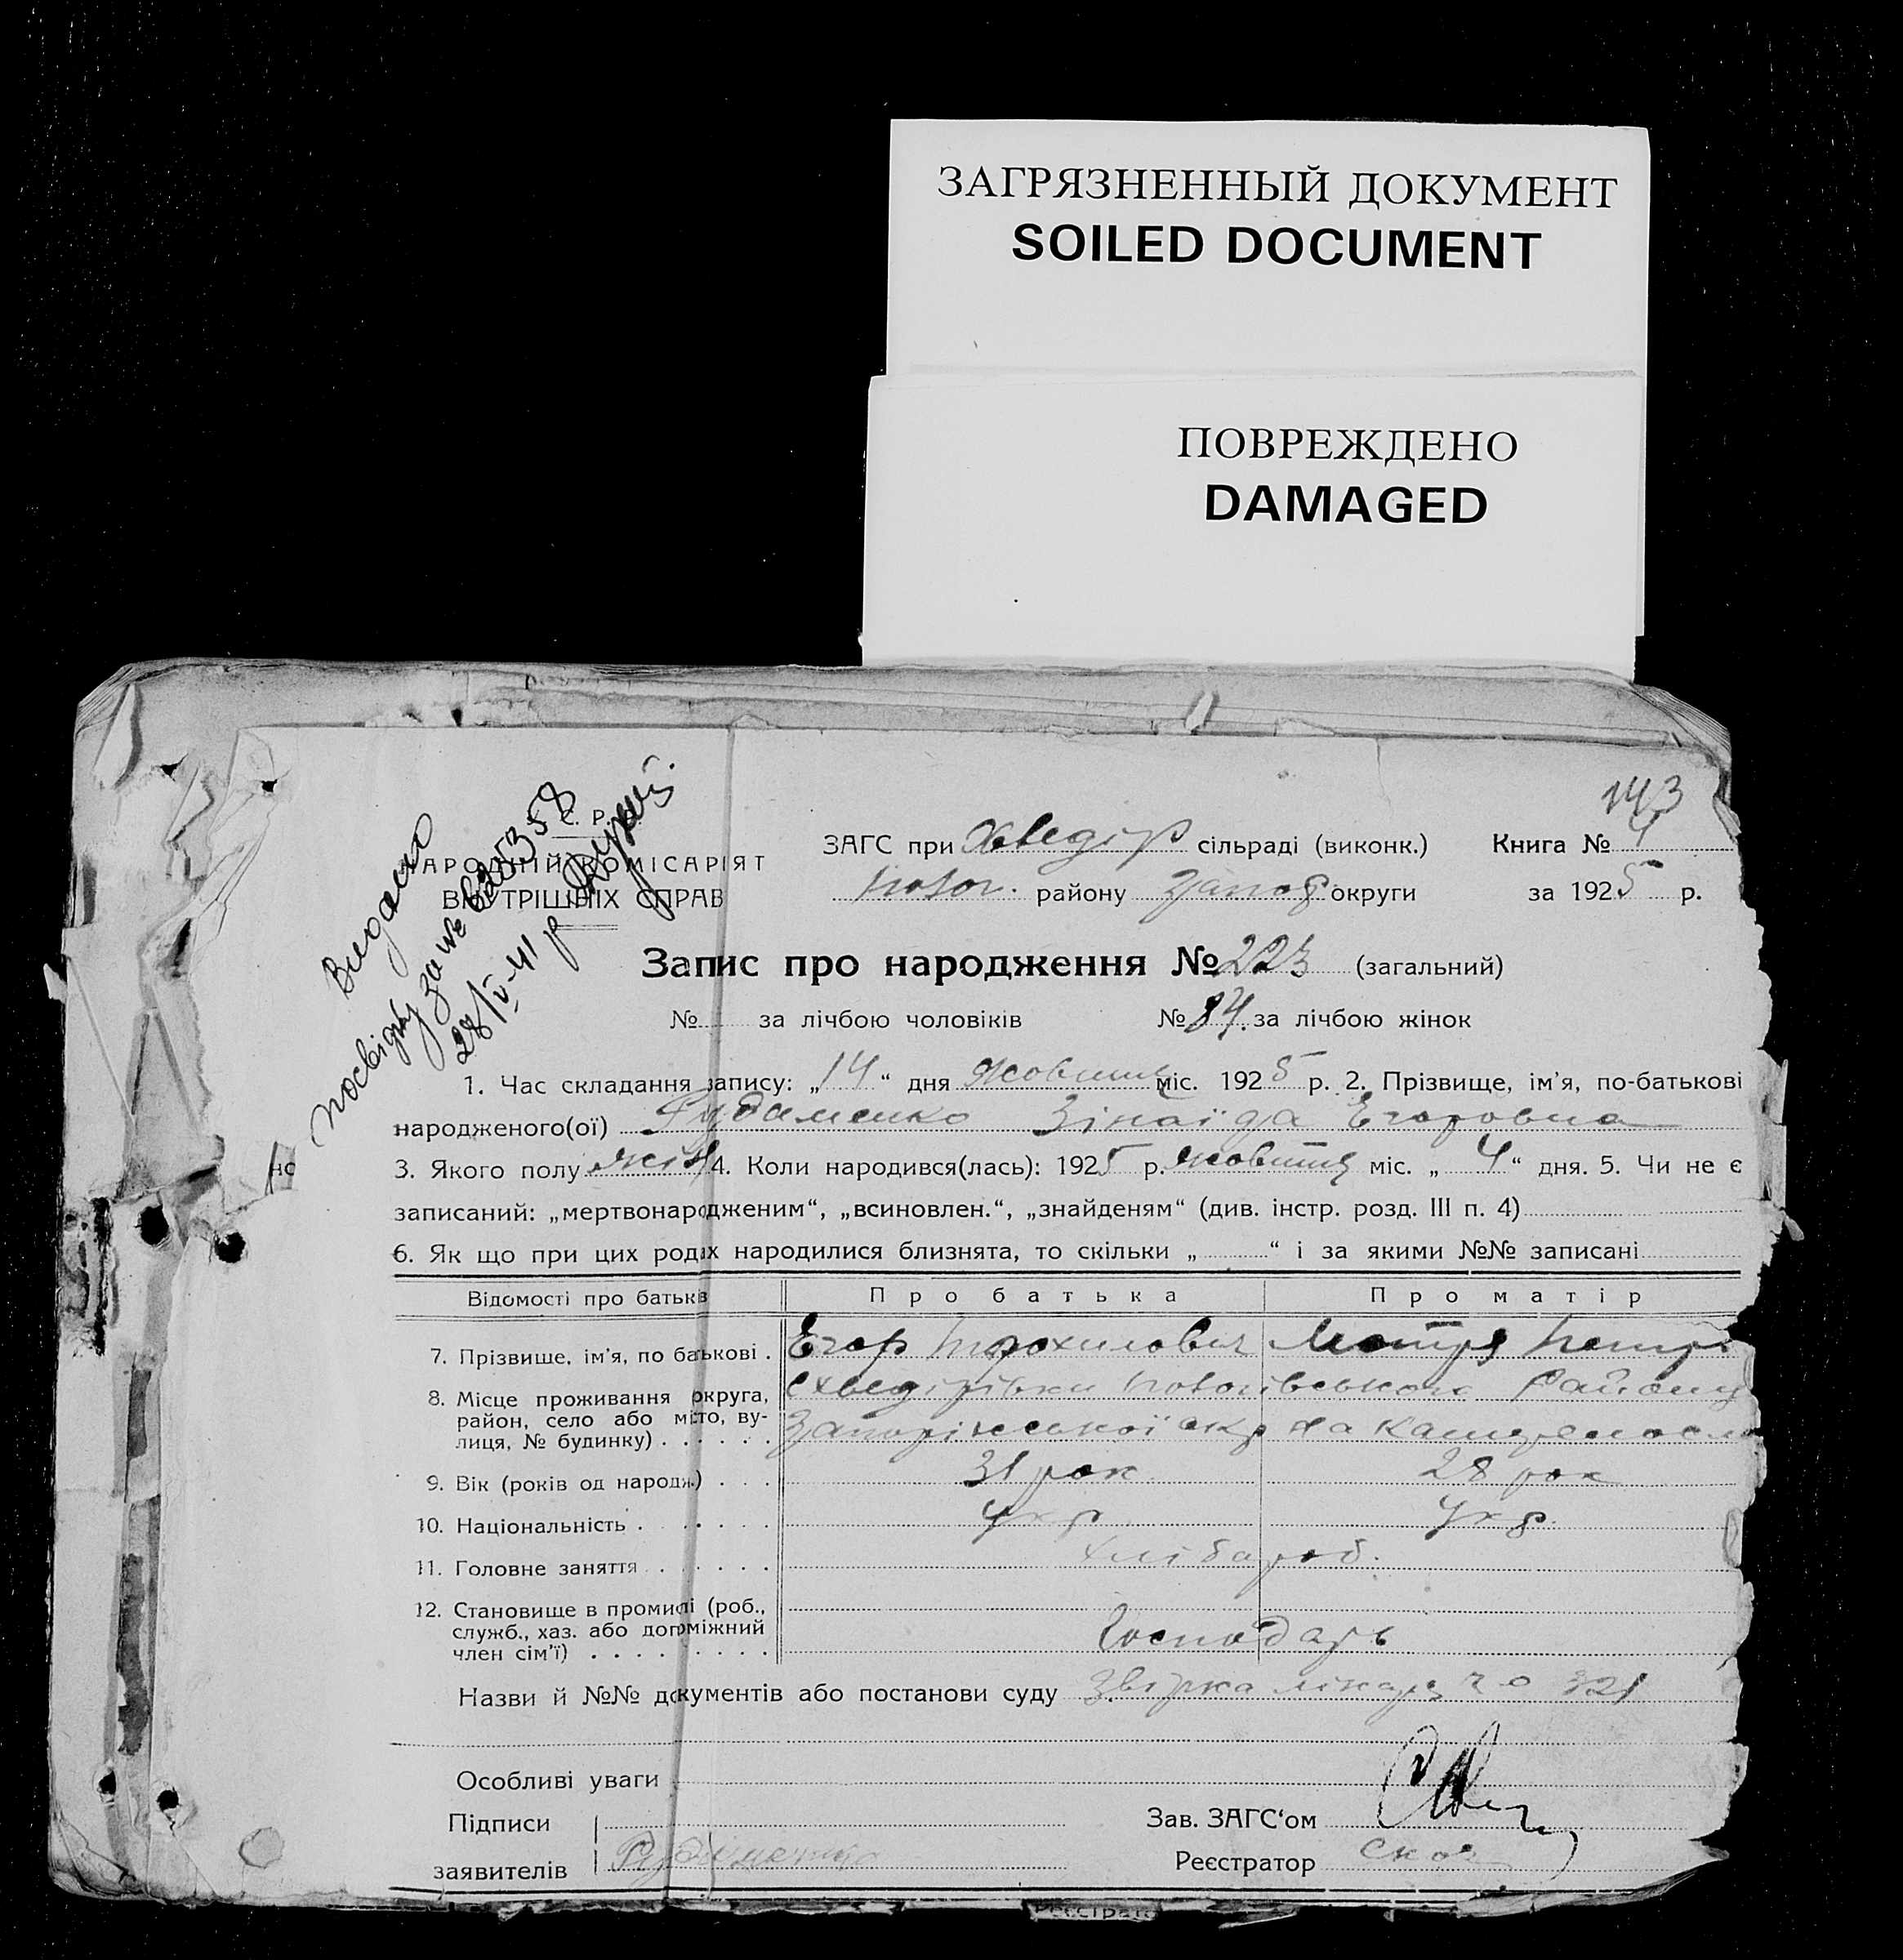 ЗАГРЯЗНЕННЫЙ ДОКУМЕНТ
SOILED DOCUMENT
ПОВРЕЖДЕНО
DAMAGED
143
Видано
посвідку за № 635358
28/V-41 р
С. Р. Р.
АРОДНІЙ КОМІСАРІЯТ
ВНУТРІШНІХ СПРАВ
ЗАГС при Хведір сільраді (виконк.) Книга № 4
району Запор округи за 1925 р.
Запис про народження № 223 (загальний)
№ за лічбою чоловіків № 84. за лічбою жінок
1. Час складання запису: „14“ дня Жовтня міс. 1925 р. 2. Прізвище, ім'я, по-батькові
народженого(ої) Рудаменко Зінаїда Егоровна
3. Якого полу жін 4. Коли народився(лась): 1925 р. жовтня міс. „4“ дня. 5. Чи не є
записаний: „мертвонародженим“, „всиновлен.“, „знайденям“ (див. інстр. розд. III п. 4)
6. Як що при цих родах народилися близнята, то скільки „ “ і за якими №№ записані
Відомості про батьків Про батька Про матір
7. Прізвище, ім'я, по батькові . Егор Трохимович Мотря Петр
8. Місце проживання округа,
район, село або місто, ву-
лиця, № будинку) . . . . . .
с Хведірівки району
Запоріжської окр на Катериносл
9. Вік (років од народж.) . . . 31 рок 28 рок
10. Національність . . . . . . Укр Укр.
11. Головне заняття . . . . . . хлібороб.
12. Становище в промислі (роб.,
служб., хаз. або допоміжний
член сім'ї) . . . . . . . . . Господарь
Назви й №№ документів або постанови суду 321
Особливі уваги
Підписи Зав. ЗАГС‘ом
заявителів Реєстратор